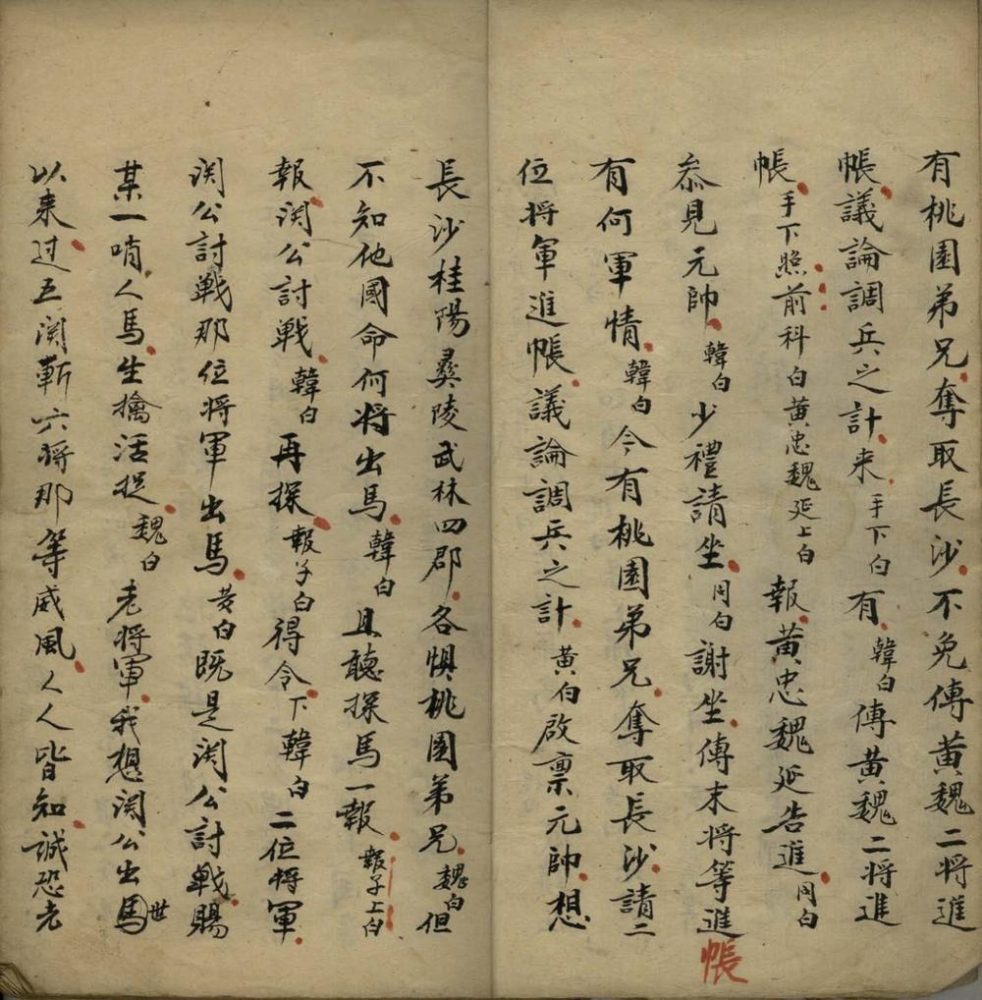 有桃園弟兄奪取長沙不免傳黃魏二将進
帳議論調兵之計来手下白有韓白傳黃魏二将進
帳手下照前科白黃忠魏延上白報黃忠魏延告進同白
叅見元帥韓白少禮請坐同白謝坐傳末将等進帳
有何軍情韓白今有桃園弟兄奪取長沙請二
位将軍進帳議論調兵之計黃白啟禀元帥想
長沙桂陽彛陵武林四郡各惧桃園弟兄魏白但
不知他國命何将出馬韓白且聽探馬一報報子上白
報関公討戦韓白再探報子白得令下韓白二位将軍
関公討戦那位将軍出馬黃白既是関公討戦賜
某一哨人馬生擒活捉魏白老将軍我想関公出馬世
以来过五関斬六将那等威風人人皆知誠恐老